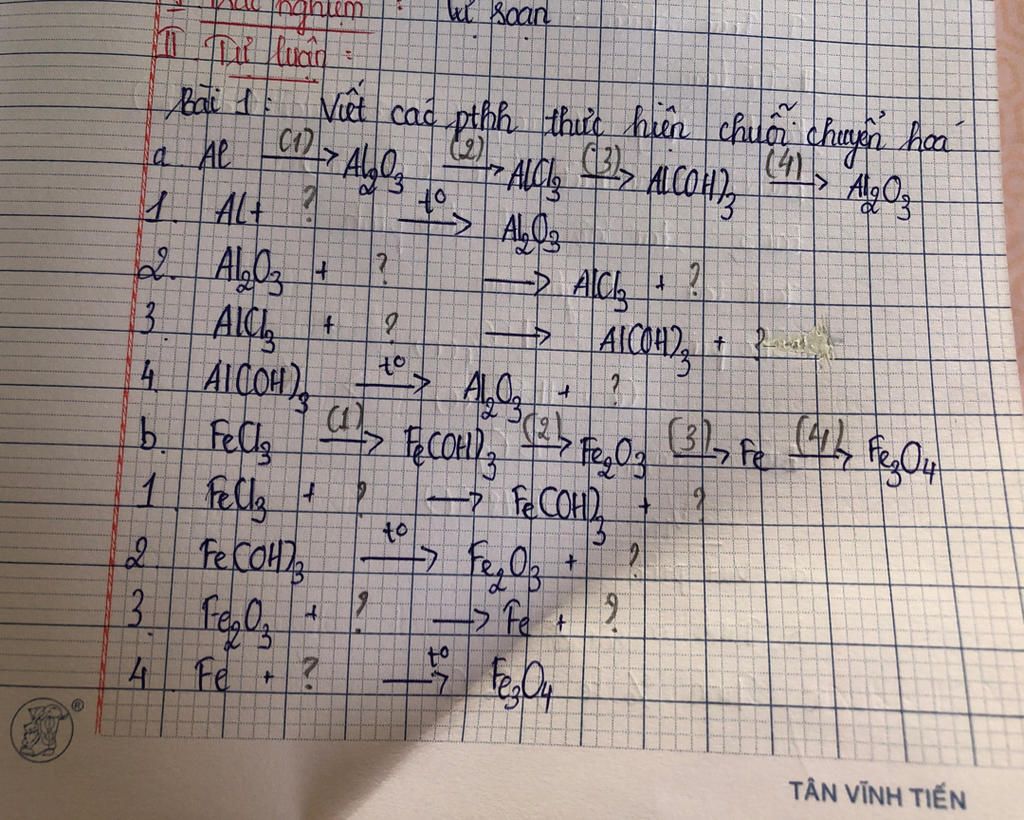 I Trắc nghiệm : tự soạn
II Tự luận :
Bài 1 : Viết các pthh thực hiện chuỗi chuyển hoá
a. Al (1)→ Al₂O₃ (2)→ AlCl₃ (3)→ Al(OH)₃ (4)→ Al₂O₃
1. Al + ? t°→ Al₂O₃
2. Al₂O₃ + ? → AlCl₃ + ?
3. AlCl₃ + ? → Al(OH)₃ + ?
4. Al(OH)₃ t°→ Al₂O₃ + ?
b. FeCl₃ (1)→ Fe(OH)₃ (2)→ Fe₂O₃ (3)→ Fe (4)→ Fe₃O₄
1 FeCl₃ + ? → Fe(OH)₃ + ?
2. Fe(OH)₃ t°→ Fe₂O₃ + ?
3. Fe₂O₃ + ? → Fe + ?
4 Fe + ? t°→ Fe₃O₄
®
TÂN VĨNH TIẾN